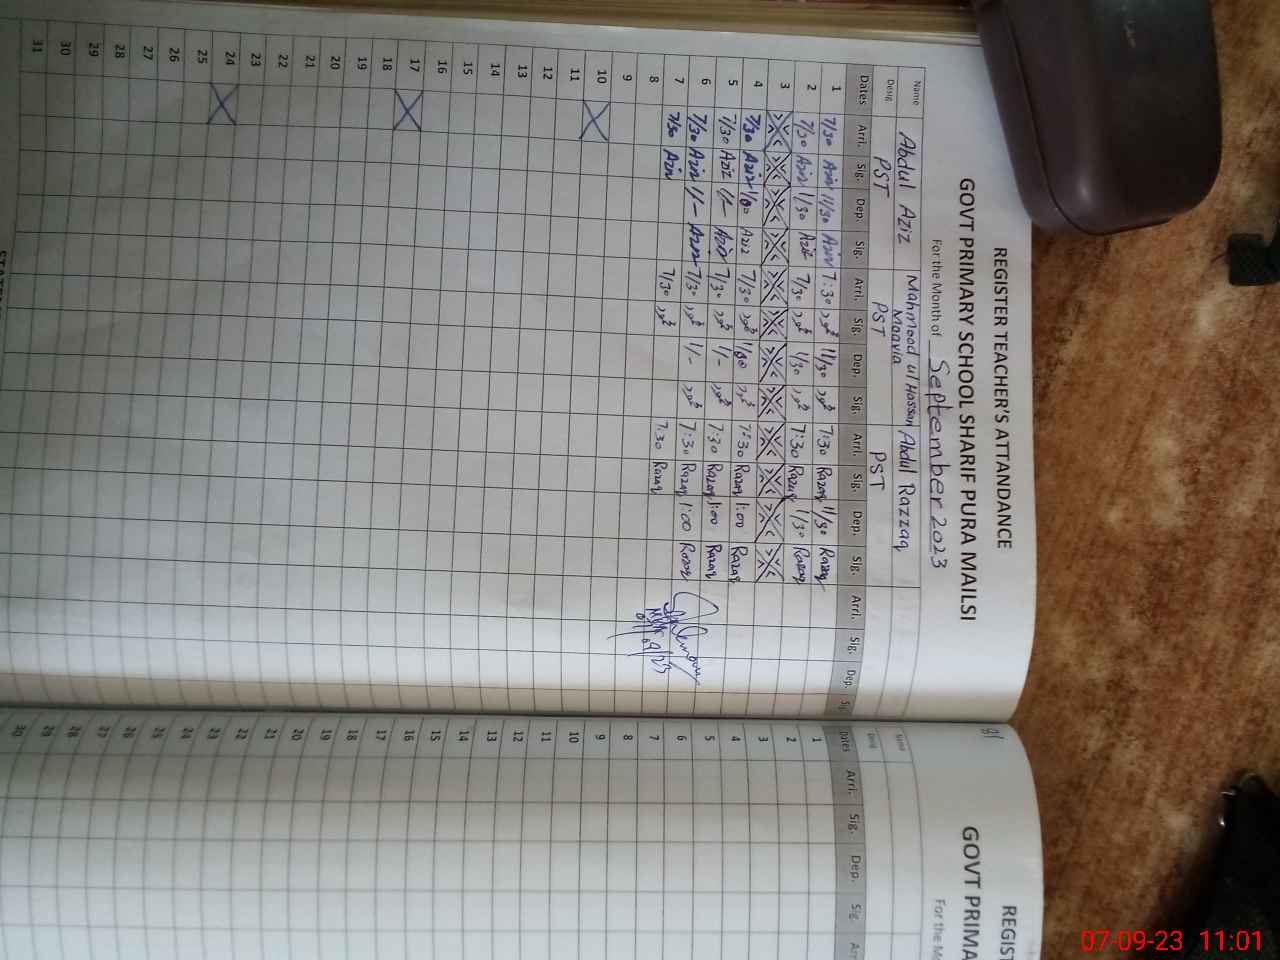 REGISTER TEACHER'S ATTANDANCE
GOVT PRIMARY SCHOOL SHARIF PURA MAILSI
For the Month of September 2023
Name Abdul Aziz Mahmood ul Hassan Moavia Abdul Razzaq
Desig PST PST PST
Dates Arri. Sig. Dep. Sig. Arri. Sig. Dep. Sig. Arri. Sig. Dep. Sig. Arri. Sig. Dep. Sig.
1 7/30 Aziz 11/30 Aziz 7:30 11/30 7:30 Razaq 11/30 Razaq
2 7/30 Aziz 1/30 Aziz 7/30 1/30 7:30 Razaq 1/30 Razaq
3
4 7/30 Aziz 1/00 Aziz 7/30 1/00 7:30 Razaq 1:00 Razaq
5 7/30 Aziz 1/- Aziz 7/30 1/- 7:30 Razaq 1:00 Razaq
6 7/30 Aziz 1/- Aziz 7/30 1/- 7:30 Razaq 1:00 Razaq
7 7/30 Aziz 7/30 7:30 Razaq
8
9
10
11
12
13
14
15
16
17
18
19
20
21
22
23
24
25
26
27
28
29
30
31
07/09/23
REGIST
GOVT PRIMA
For the Mo
Name
Desig
Dates Arri. Sig. Dep. Sig. Arri
1
2
3
4
5
6
7
8
9
10
11
12
13
14
15
16
17
18
19
20
21
22
23
24
25
26
27
28
29
30
07-09-23 11:01